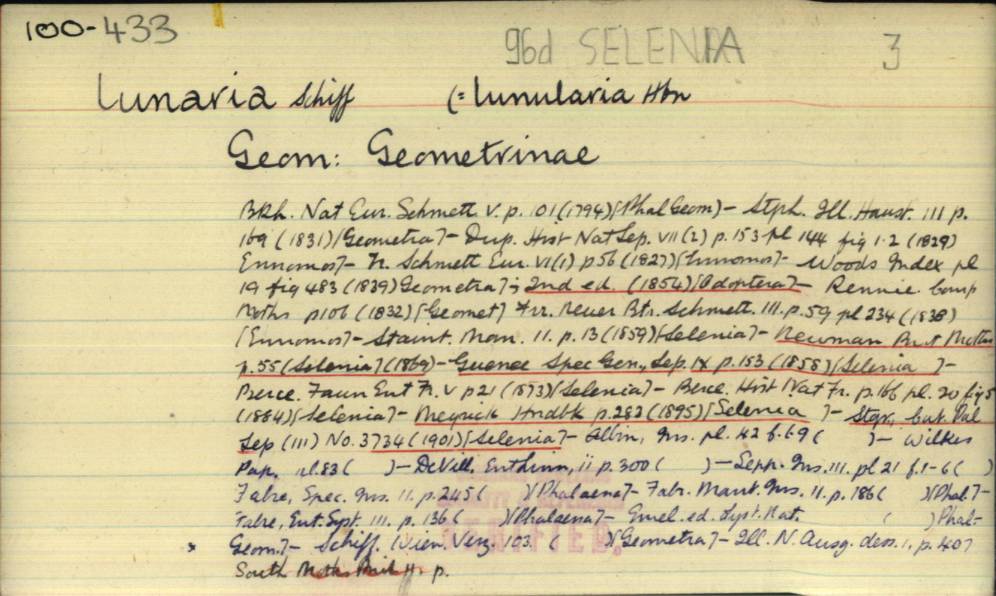 100-433
96d SELENIA 3
Lunaria Schiff (= lunularia Hbn
Geom: Geometrinae
Bkh. Nat Eur. Schmett V. p. 101 (1794) [Phal Geom] - Stph. Ill. Haust. III p.
169 (1831) [Geometra] - Dup. Hist Nat Lep. VII (2) p. 153 pl 144 fig 1-2 (1829)
Ennomos] - Tr. Schmett Eur. VI (1) p 56 (1827) [Ennomos] - Woods Index pl
19 fig 483 (1839) Geometra] - 2nd ed. (1854) [Odoptera] - Rennie Comp
Moths p 106 (1832) [Geomet] Frr. Neuer Btr. Schmett. III. p. 59 pl 234 (1838)
[Ennomos] - Staint. Man. II. p. 13 (1859) [Selenia] - Newman Brit Moths
p. 55 [Selenia] (1869) - Guenee Spec Gen, Lep. IX p. 153 (1858) [Selenia ] -
Pierce. Faun Ent Fr. V p 21 (1873) [Selenia] - Berce. Hist Nat Fr. p. 166 pl. 20 fig 5
(1864) [Selenia] - Meyrick Hndbk p. 282 (1895) [Selenia ] - Stgr, Cat. Pal
Lep (III) No. 3734 (1901) [Selenia] - Albin, Ins. pl. 42 f. 69 ( ) - Wilkes
Pap. pl. 83 ( ) - De Vill. Ent Linn, ii p. 300 ( ) - Sepp. Ins. III. pl 21 f. 1-6 ( )
Fabre, Spec. Ins. II. p. 245 ( ) (Phalaena] - Fabr. Mant. Ins. II. p. 186 ( ) [Phal. -
Fabre, Ent. Syst. III. p. 136 ( ) [Phalaena] - Gmel. ed. Syst. Nat. ( ) Phal-
* Geom.] - Schiff. Wien. Verz. 103. ( ) [Geometra] - Ill. N. Ausg. dess. I, p. 407
South Moths Brit II. p.